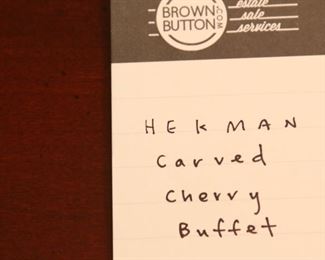 BROWN
BUTTON
.COM
estate
sale
services
HEKMAN
Carved
Cherry
Buffet